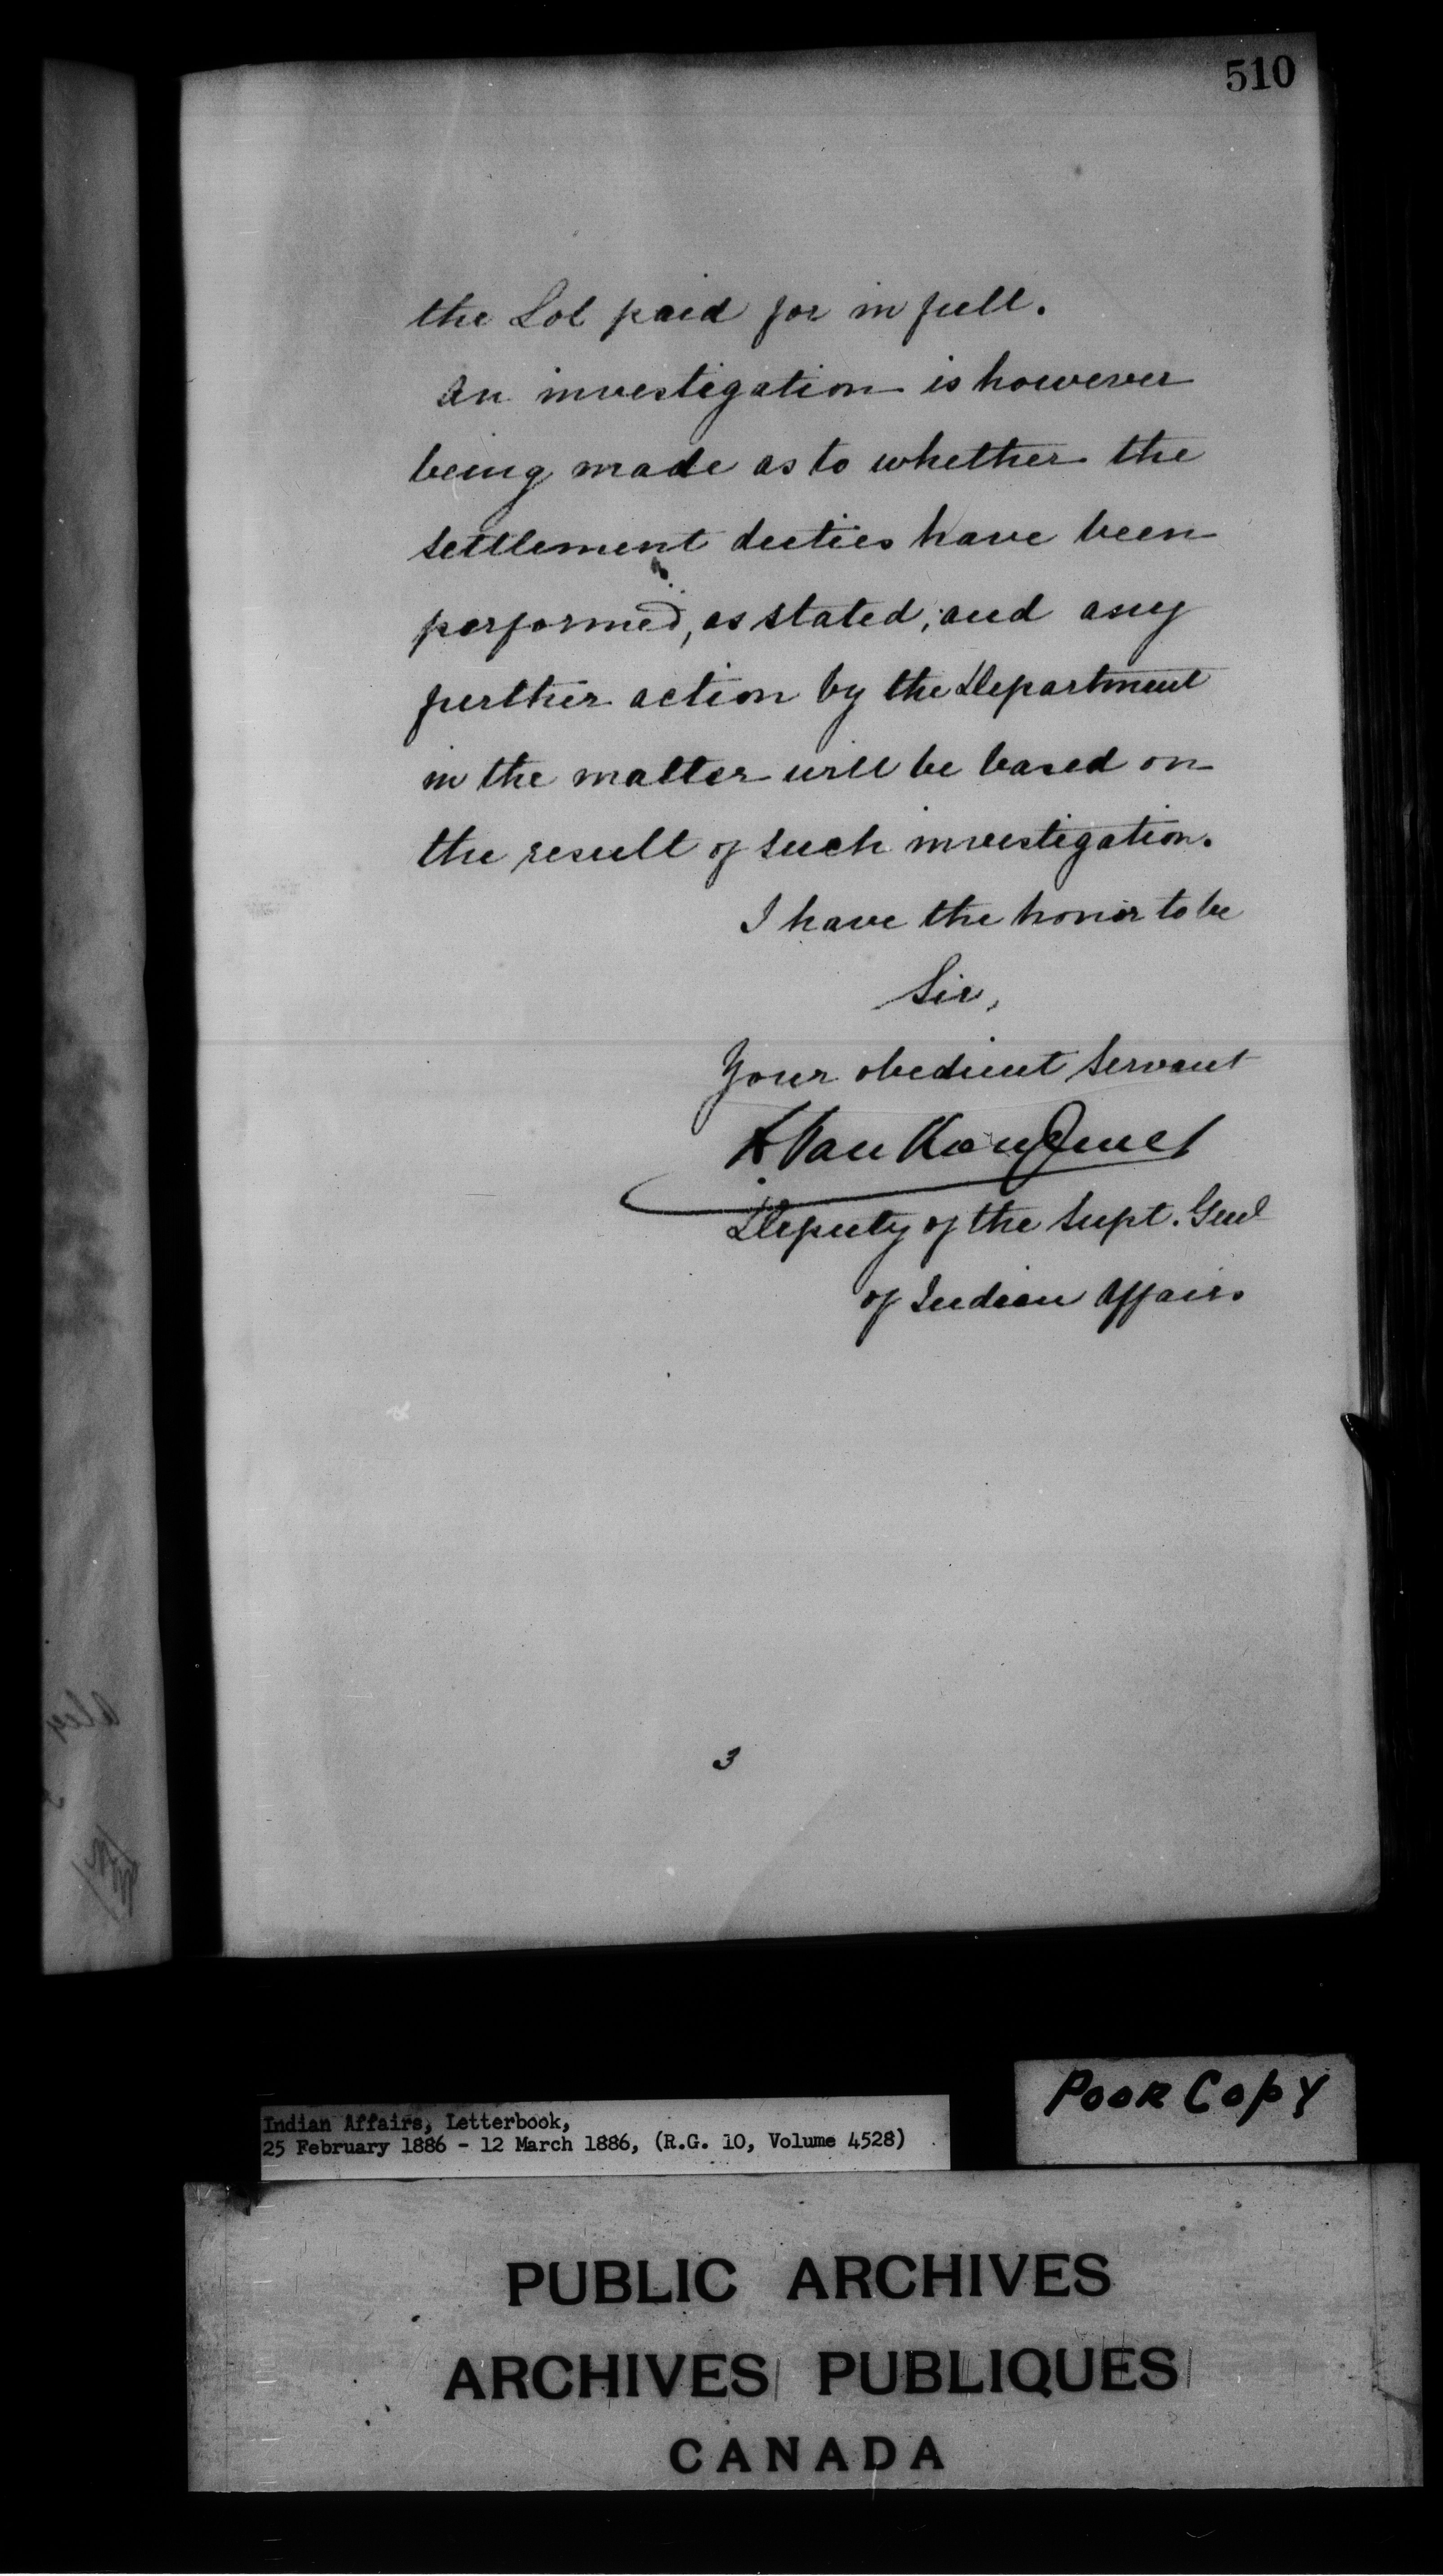 510
the Lot paid for in full.
An investigation is however
being made as to whether the
settlement duties have been
performed, as stated, and any
further action by the Department
in the matter will be based on
the result of such investigation.
I have the honor to be
Sir,
Your obedient servant
L VanKoughnet
Deputy of the Supt. Genl
of Indian Affairs
3
Poor Copy
Indian Affairs, Letterbook,
25 February 1886 - 12 March 1886, (R.G. 10, Volume 4528)
PUBLIC ARCHIVES
ARCHIVES PUBLIQUES
CANADA